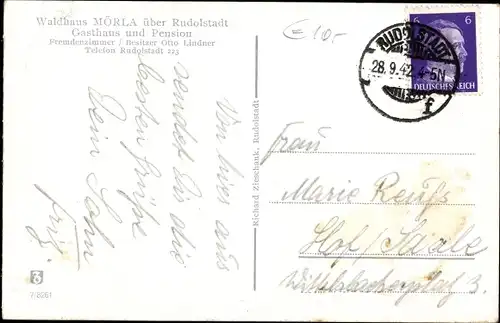 Waldhaus MÖRLA über Rudolstadt
Gasthaus und Pension
Fremdenzimmer / Besitzer Otto Lindner
Telefon Rudolstadt 225
€ 10,-
RUDOLSTADT
28.9.42.4-5N
f
6 6
DEUTSCHES REICH
Von hier aus
sendet Dir die
besten Grüße
Dein Sohn
Fritz.
Richard Zieschank, Rudolstadt
Frau
Marie Reuß
Hof/Saale
Wittelsbacherplatz 3.
7/8261